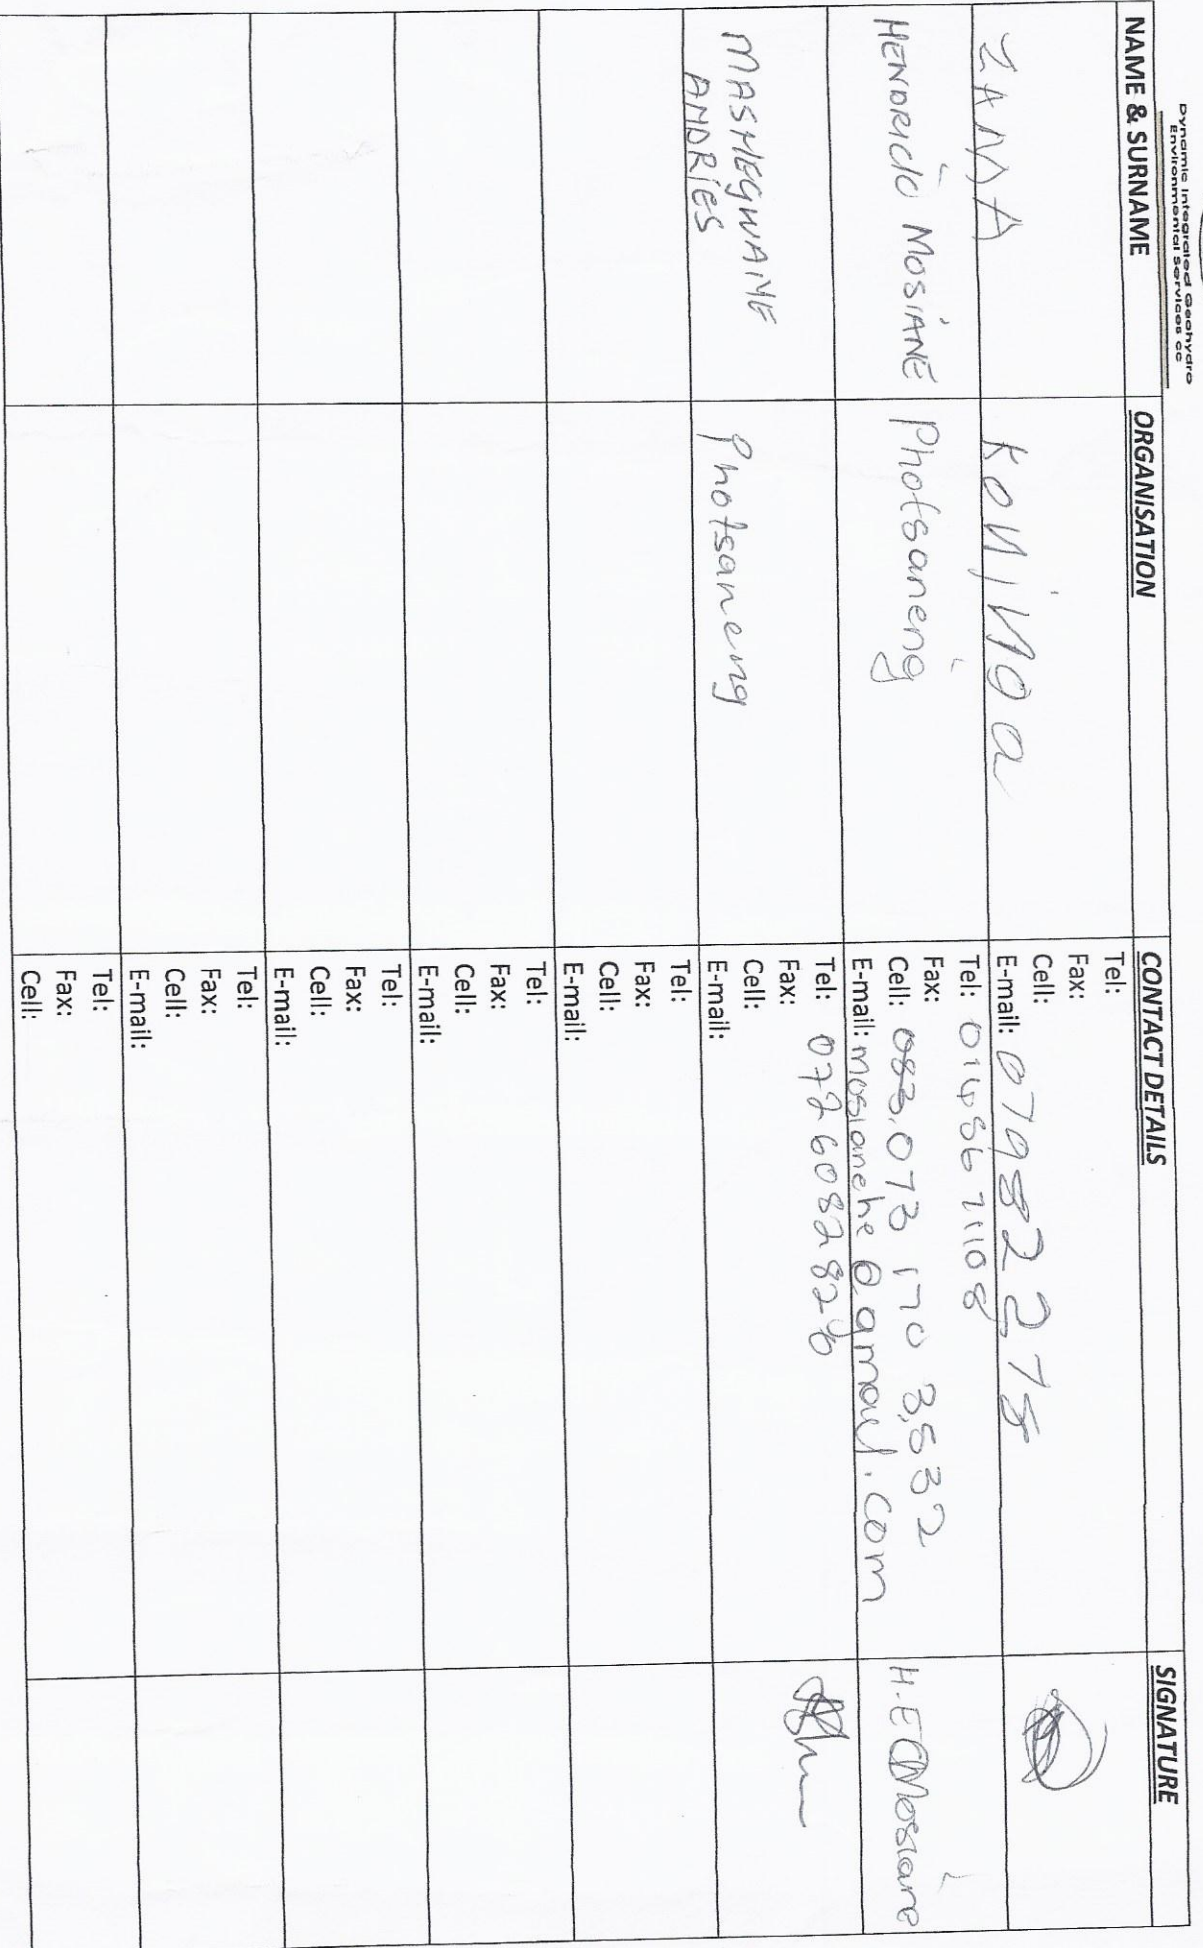 Dynamic Integrated Geohydro
Environmental Services cc
NAME & SURNAME ORGANISATION CONTACT DETAILS SIGNATURE
ZAMA
Tel:
Fax:
Cell:
E-mail: 079822278
HENDRICIO MOSIANE Photsaneng
Tel:
Fax:
Cell: 083.073 170 3532
E-mail: mosianehe@gmail.com
H.E Mosiane
MASHEGWAINE
ANDRIES
Photsaneng
Tel: 0726082828
Fax:
Cell:
E-mail:
Tel:
Fax:
Cell:
E-mail:
Tel:
Fax:
Cell:
E-mail:
Tel:
Fax:
Cell:
E-mail:
Tel:
Fax:
Cell:
E-mail:
Tel:
Fax:
Cell: